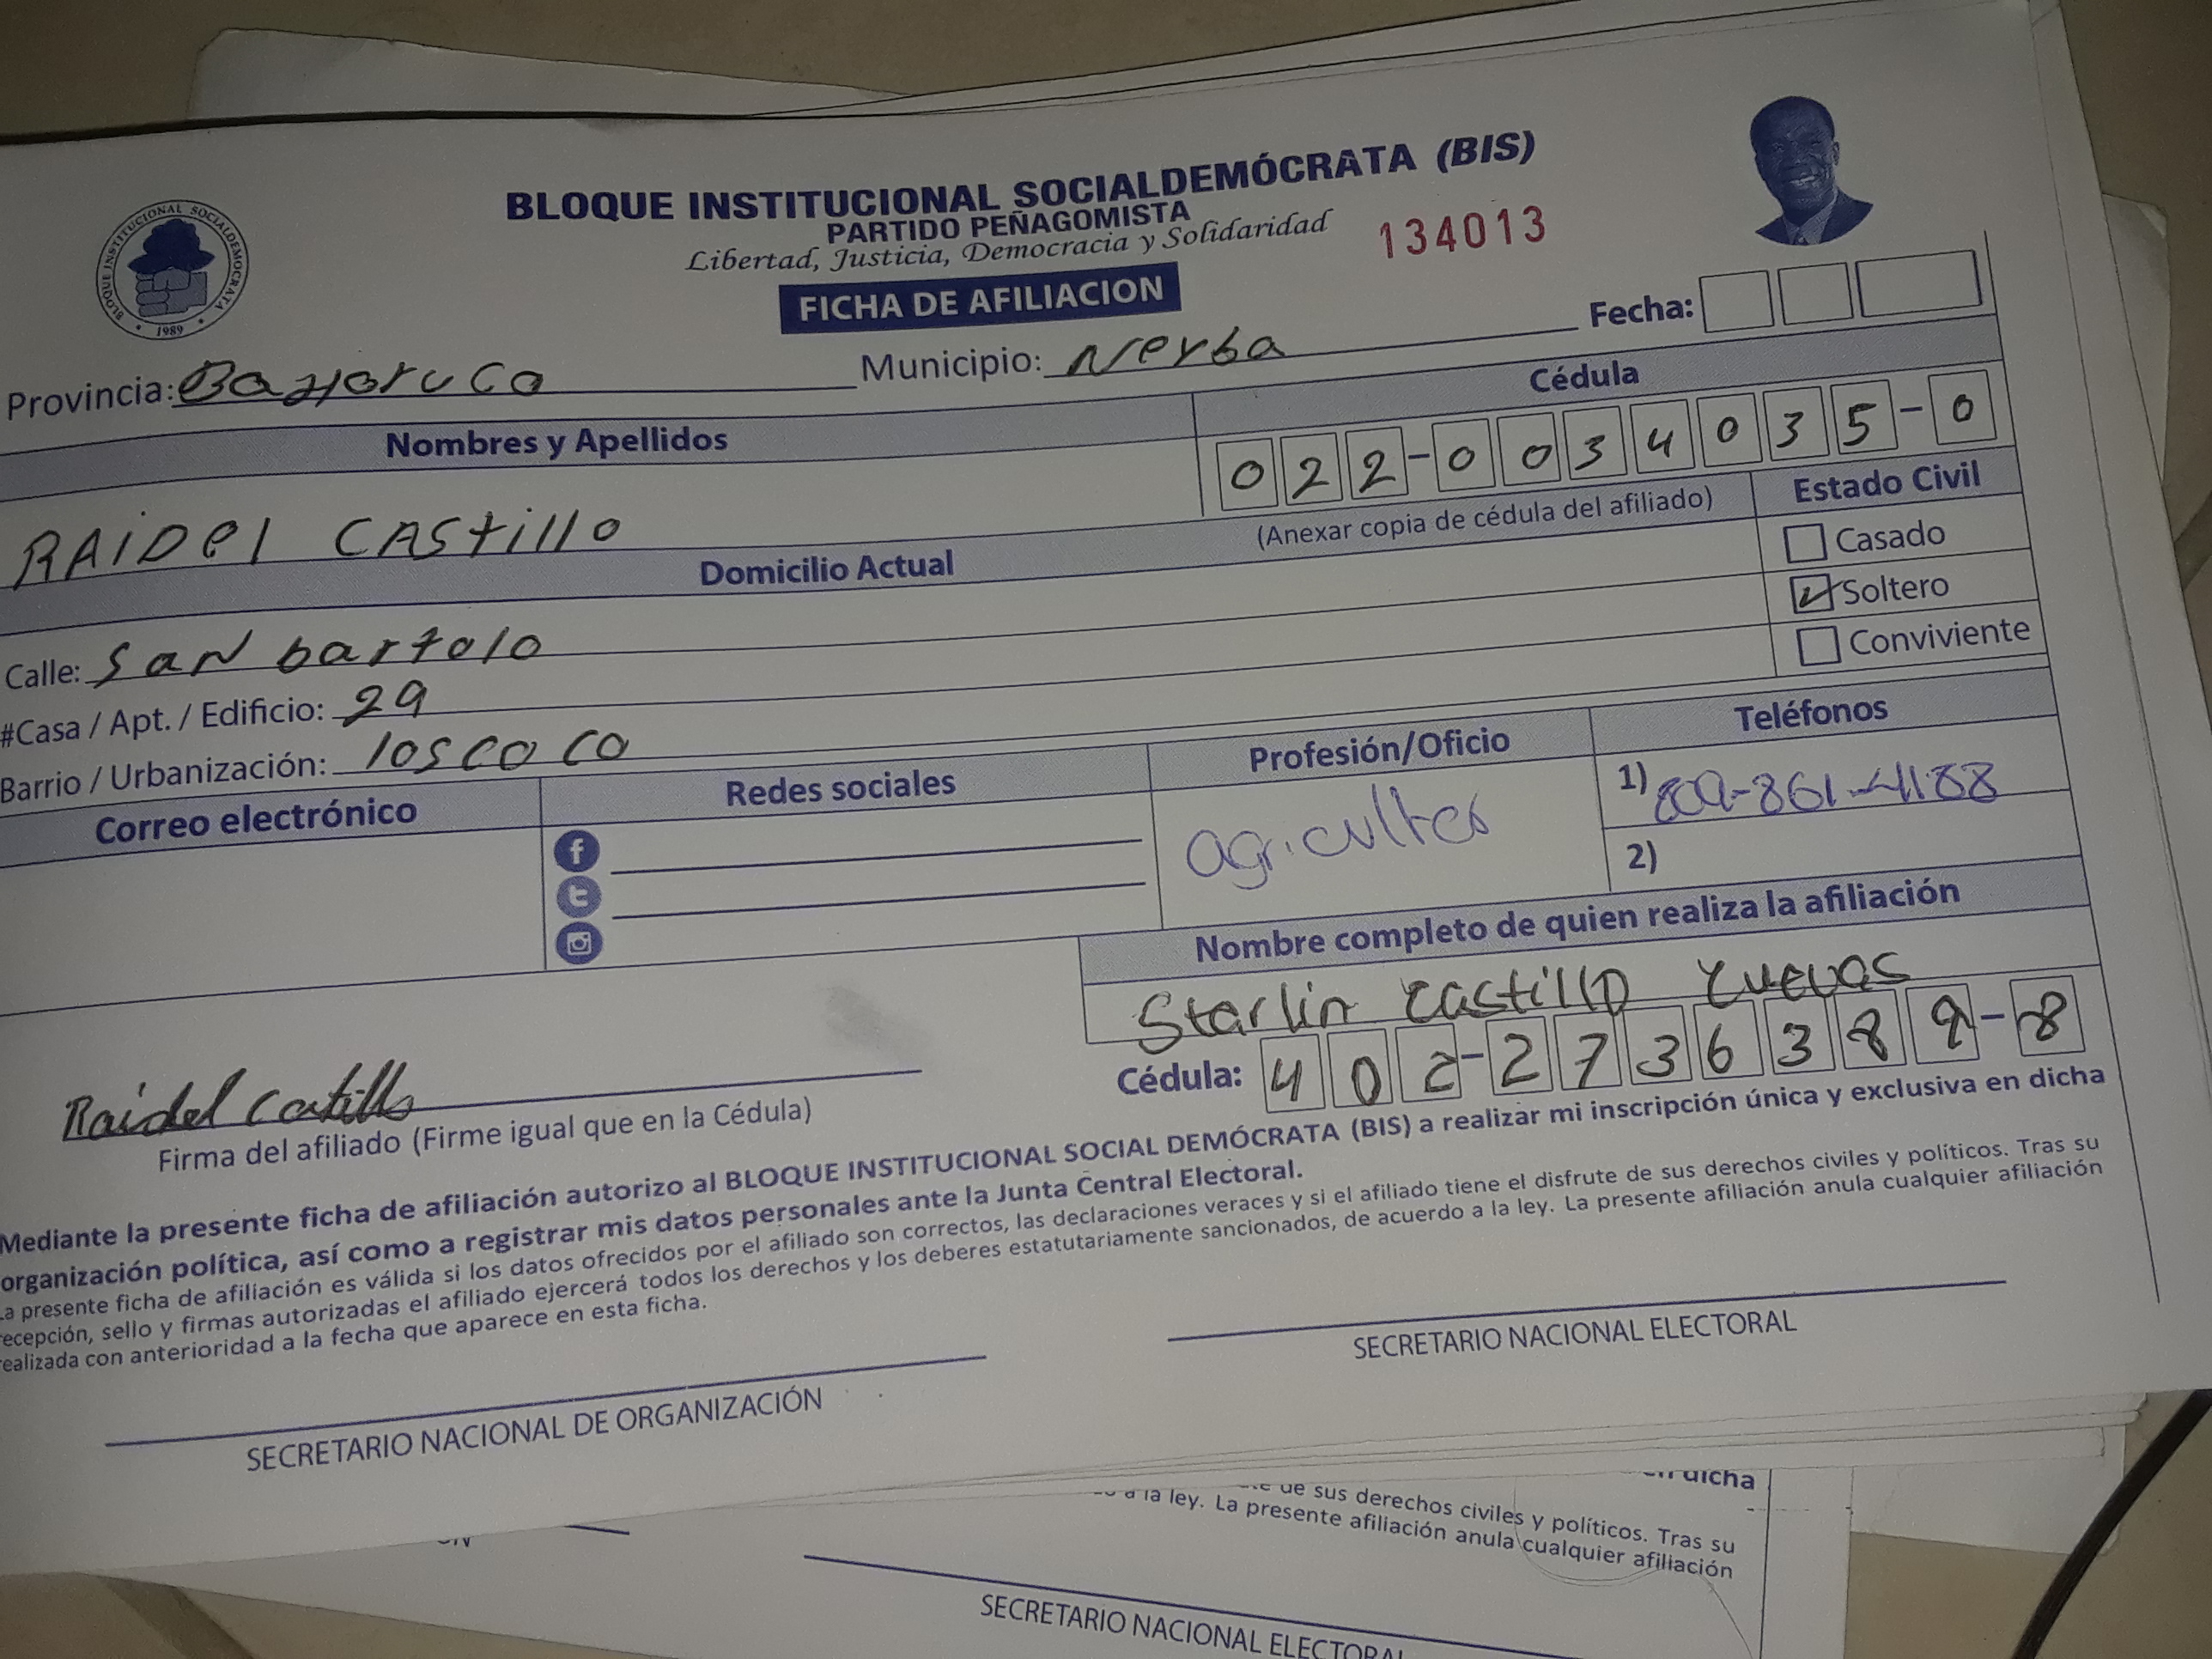 BLOQUE INSTITUCIONAL SOCIALDEMÓCRATA (BIS)
PARTIDO PEÑAGOMISTA
Libertad, Justicia, Democracia y Solidaridad
134013
BLOQUE INSTITUCIONAL SOCIALDEMOCRATA
1989
FICHA DE AFILIACION
Fecha:
Provincia: Bahoruco Municipio: Neyba
Nombres y Apellidos Cédula
022-0034035-0
RAIDEl CAStillo
(Anexar copia de cédula del afiliado)
Estado Civil
Casado
Soltero
Conviviente
Domicilio Actual
Calle: San bartolo
#Casa / Apt. / Edificio: 29
Barrio / Urbanización: los coco
Correo electrónico Redes sociales Profesión/Oficio Teléfonos
agricultor
1) 809-861-4188
2)
Nombre completo de quien realiza la afiliación
Starlin Castillo Cuevas
Cédula: 402-2736389-8
Raidel Castillo
Firma del afiliado (Firme igual que en la Cédula)
Mediante la presente ficha de afiliación autorizo al BLOQUE INSTITUCIONAL SOCIAL DEMÓCRATA (BIS) a realizar mi inscripción única y exclusiva en dicha
organización política, así como a registrar mis datos personales ante la Junta Central Electoral.
La presente ficha de afiliación es válida si los datos ofrecidos por el afiliado son correctos, las declaraciones veraces y si el afiliado tiene el disfrute de sus derechos civiles y políticos. Tras su
recepción, sello y firmas autorizadas el afiliado ejercerá todos los derechos y los deberes estatutariamente sancionados, de acuerdo a la ley. La presente afiliación anula cualquier afiliación
realizada con anterioridad a la fecha que aparece en esta ficha.
SECRETARIO NACIONAL DE ORGANIZACIÓN
SECRETARIO NACIONAL ELECTORAL
dicha
de sus derechos civiles y políticos. Tras su
a la ley. La presente afiliación anula cualquier afiliación
SECRETARIO NACIONAL ELECTORAL